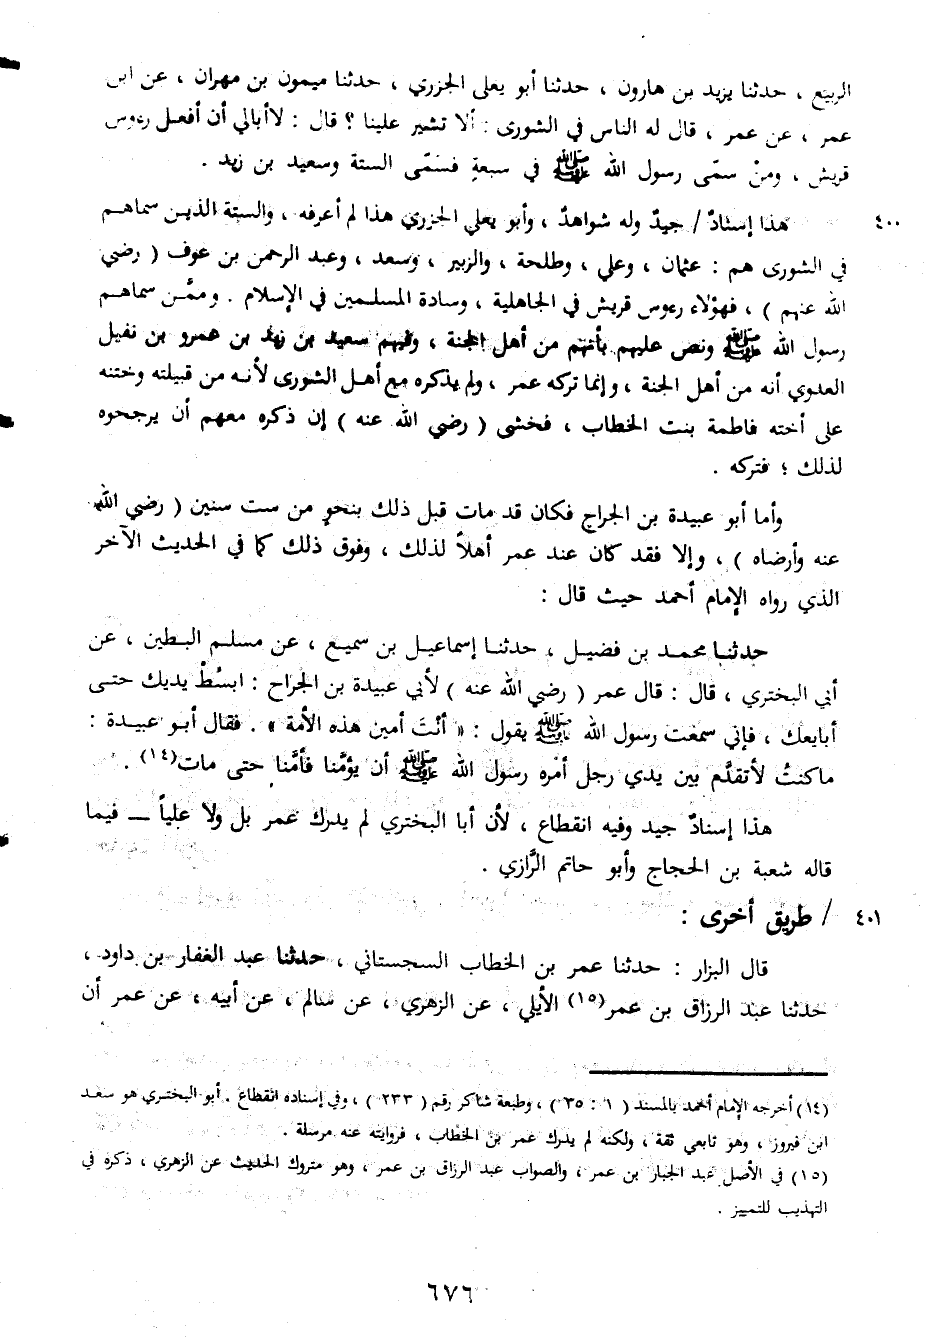 الربيع ، حدثنا يزيد بن هارون ، حدثنا أبو يعلى الجزري ، حدثنا ميمون بن مهران ، عن ابن
عمر ، عن عمر ، قال له الناس في الشورى : ألا تشير علينا ؟ قال : لاأبالي أن أفعل رءوس
قريش ، ومنْ سمّى رسول الله ﷺ في سبعةٍ فسمّى الستة وسعيد بن زيد .
٤٠٠ هذا إسنادٌ / جيدٌ وله شواهدٌ ، وأبو يعلي الجزري هذا لم أعرفه ، والستة الذين سماهم
في الشورى هم : عثمان ، وعلي ، وطلحة ، والزبير ، وسعد ، وعبد الرحمن بن عوف ( رضي
الله عنهم ) ، فهؤلاء رءوس قريش في الجاهلية ، وسادة المسلمين في الإسلام . وممَّن سماهم
رسول الله ﷺ ونص عليهم بأنهم من أهل الجنة ، وفيهم سعيد بن زيد بن عمرو بن نفيل
العدوي أنه من أهل الجنة ، وإنما تركه عمر ، ولم يذكره مع أهل الشورى لأنه من قبيلته وختنه
على أخته فاطمة بنت الخطاب ، فخشى ( رضي الله عنه ) إن ذكره معهم أن يرجحوه
لذلك ؛ فتركه .
وأما أبو عبيدة بن الجراج فكان قد مات قبل ذلك بنحوٍ من ست سنين ( رضي الله
عنه وأرضاه ) ، وإلا فقد كان عند عمر أهلاً لذلك ، وفوق ذلك كما في الحديث الآخر
الذي رواه الإمام أحمد حيث قال :
حدثنا محمد بن فضيل ، حدثنا إسماعيل بن سميع ، عن مسلم البطين ، عن
أبي البختري ، قال : قال عمر ( رضي الله عنه ) لأبي عبيدة بن الجراح : ابسُطْ يديك حتى
أبايعك ، فإني سمعت رسول الله ﷺ يقول : « أنْتَ أمين هذه الأمة » . فقال أبو عبيدة :
ماكنتُ لأتقدَّم بين يدي رجل أمره رسول الله ﷺ أن يؤمَّنا فأمَّنا حتى مات(١٤) .
هذا إسنادٌ جيد وفيه انقطاع ، لأن أبا البختري لم يدرك عمر بل ولا علياً ــ فيما
قاله شعبة بن الحجاج وأبو حاتم الرَّازي .
٤٠١ / طريق أخرى :
قال البزار : حدثنا عمر بن الخطاب السجستاني ، حدثنا عبد الغفار بن داود ،
حدثنا عبد الرزاق بن عمر(١٥) الأيلي ، عن الزهري ، عن سالم ، عن أبيه ، عن عمر أن
(١٤) أخرجه الإمام أحمد بالمسند ( ١ : ٣٥ ) ، وطبعة شاكر رقم ( ٢٣٣ ) ، وفي إسناده انقطاع . أبو البختري هو سعد
ابن فيروز ، وهو تابعي ثقة ، ولكنه لم يدرك عمر بن الخطاب ، فروايته عنه مرسلة .
(١٥) في الأصل عبد الجبار بن عمر ، والصواب عبد الرزاق بن عمر ، وهو متروك الحديث عن الزهري ، ذكره في
التهذيب للتمييز .
٦٧٦